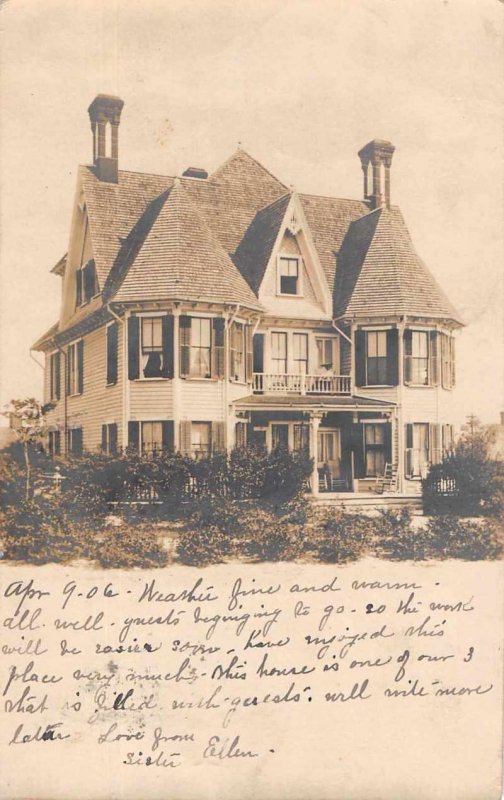 Apr 9-06- Weather fine and warm.
all. well. guests begining to go- so the work
will be easier soon. have enjoyed this
place very much. this house is one of our 3
that is filled with guests. will write more
later Love from
sister Ellen.